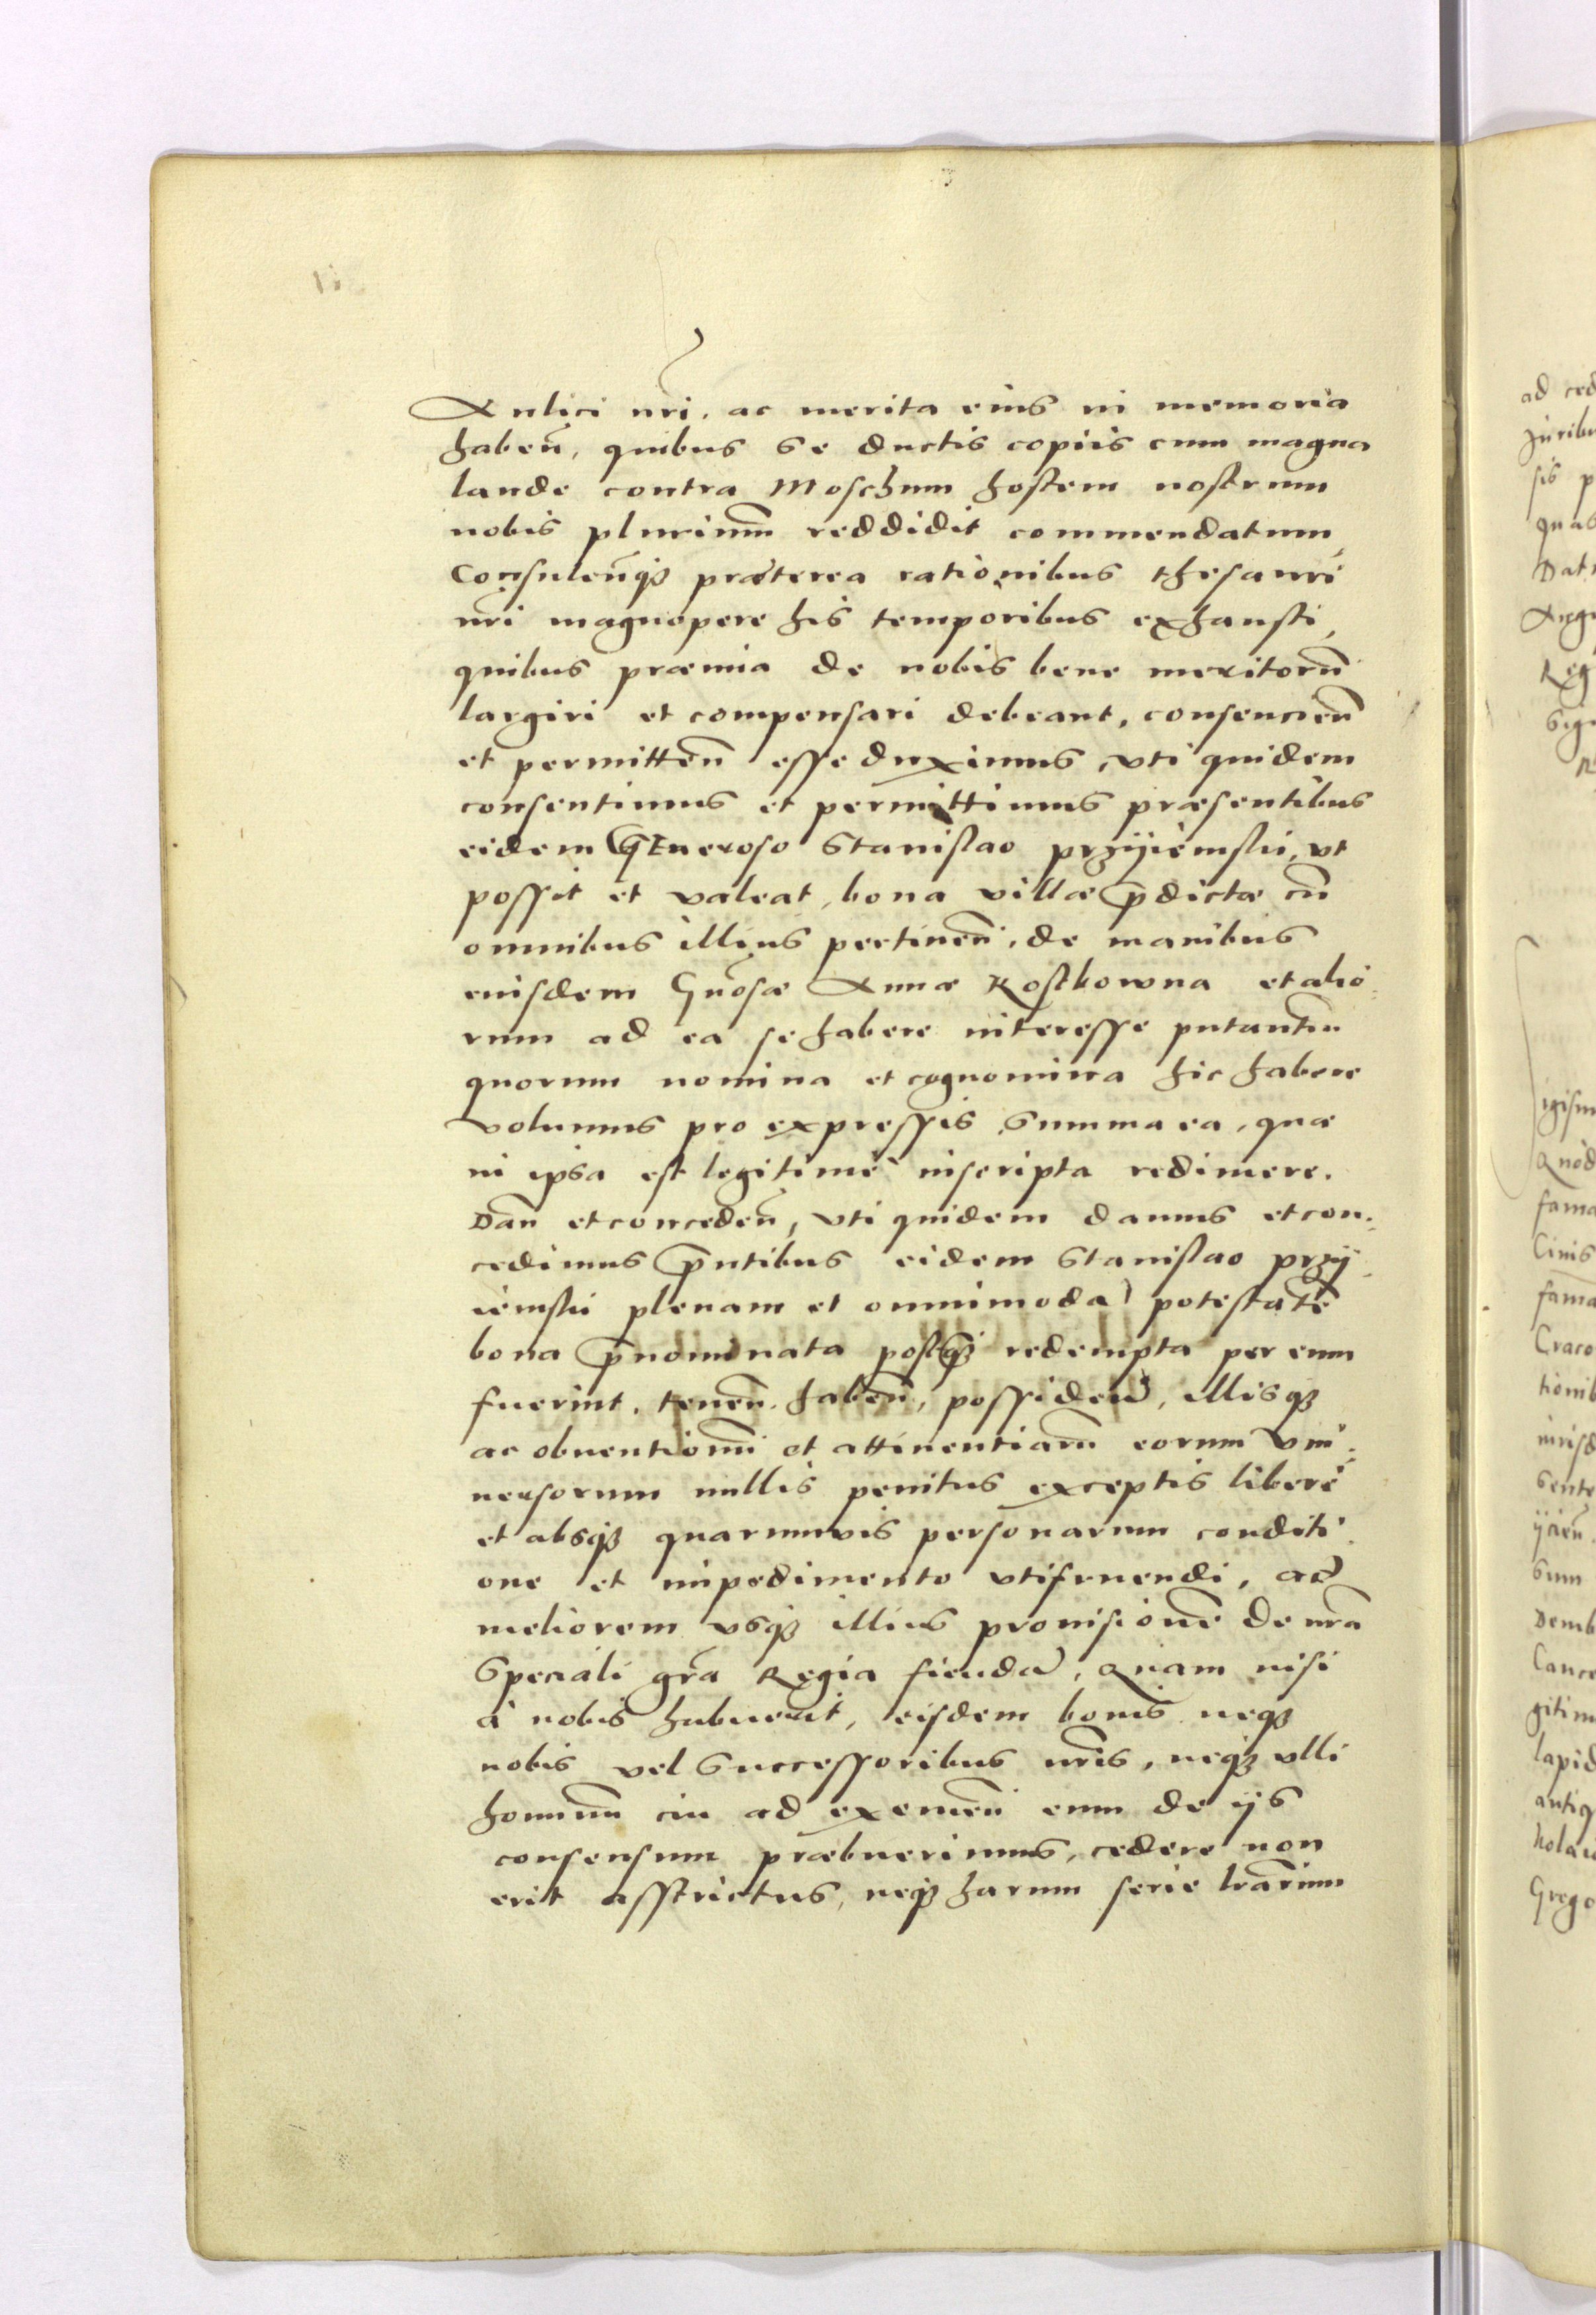 Aulici nr̃i, ac merita eius in memoria
habeñ, quibus se ductis copiis cum magna
laude contra Moschum hostem nostrum
nobis plurimũ reddidit commendatum,
Consuleñq₃ præterea rationibus thesauri
nr̃i magnopere his temporibus exhausti,
quibus præmia de nobis bene meritorũ
largiri et compensari debeant, consencieñ
et permitteñ esse duximus, vti quidem
consentimus et permittimus præsentibus
eidem Generoso Stanislao przyiemski, vt
possit et valeat, bona villæ p̃dictæ cũ
omnibus illius pertineñ, de manibus
eiusdem Gñosæ Annæ Kostkowna et alio-
rum ad ea se habere interesse putantiũ
quorum nomina et cognomina hic habere
volumus pro expressis summa ea, quæ
in ipsa est legitimè inscripta redimere.
Dañ et concedeñ, vti quidem damus et con-
cedimus p̃ntibus eidem Stanislao przy-
iemski plenam et omnimodã potestatẽ
bona p̃nominata postq₃ redempta per eum
fuerint, teneñ, habeñ, possideñ, illisq₃
ac obuentionũ et attinentiarũ eorum vni-
uersorum nullis penitus exceptis liberè
et absq₃ quarumvis personarum conditi-
one et impedimento vtifruendi, ad
meliorem vsq₃ illius prouisionẽ de nr̃a
Speciali gr̃a Regia fiendã, Quam nisi
à nobis habuerit, eisdem bonis neq₃
nobis vel Successoribus nr̃is, neq₃ vlli
hominũ cui ad eximeñ eum de ijs
consensum præbuerimus, cedere non
erit asstrictus, neq₃ harum serie lr̃arum
ad ced
Juribu
sis p
quas
Dat
Reg
Sigi
igism
Quod
fama
Cinis
fama
Craco
tionib
iurisd
Sente
Demb
Cance
gitim
lapid
antiq
Grego